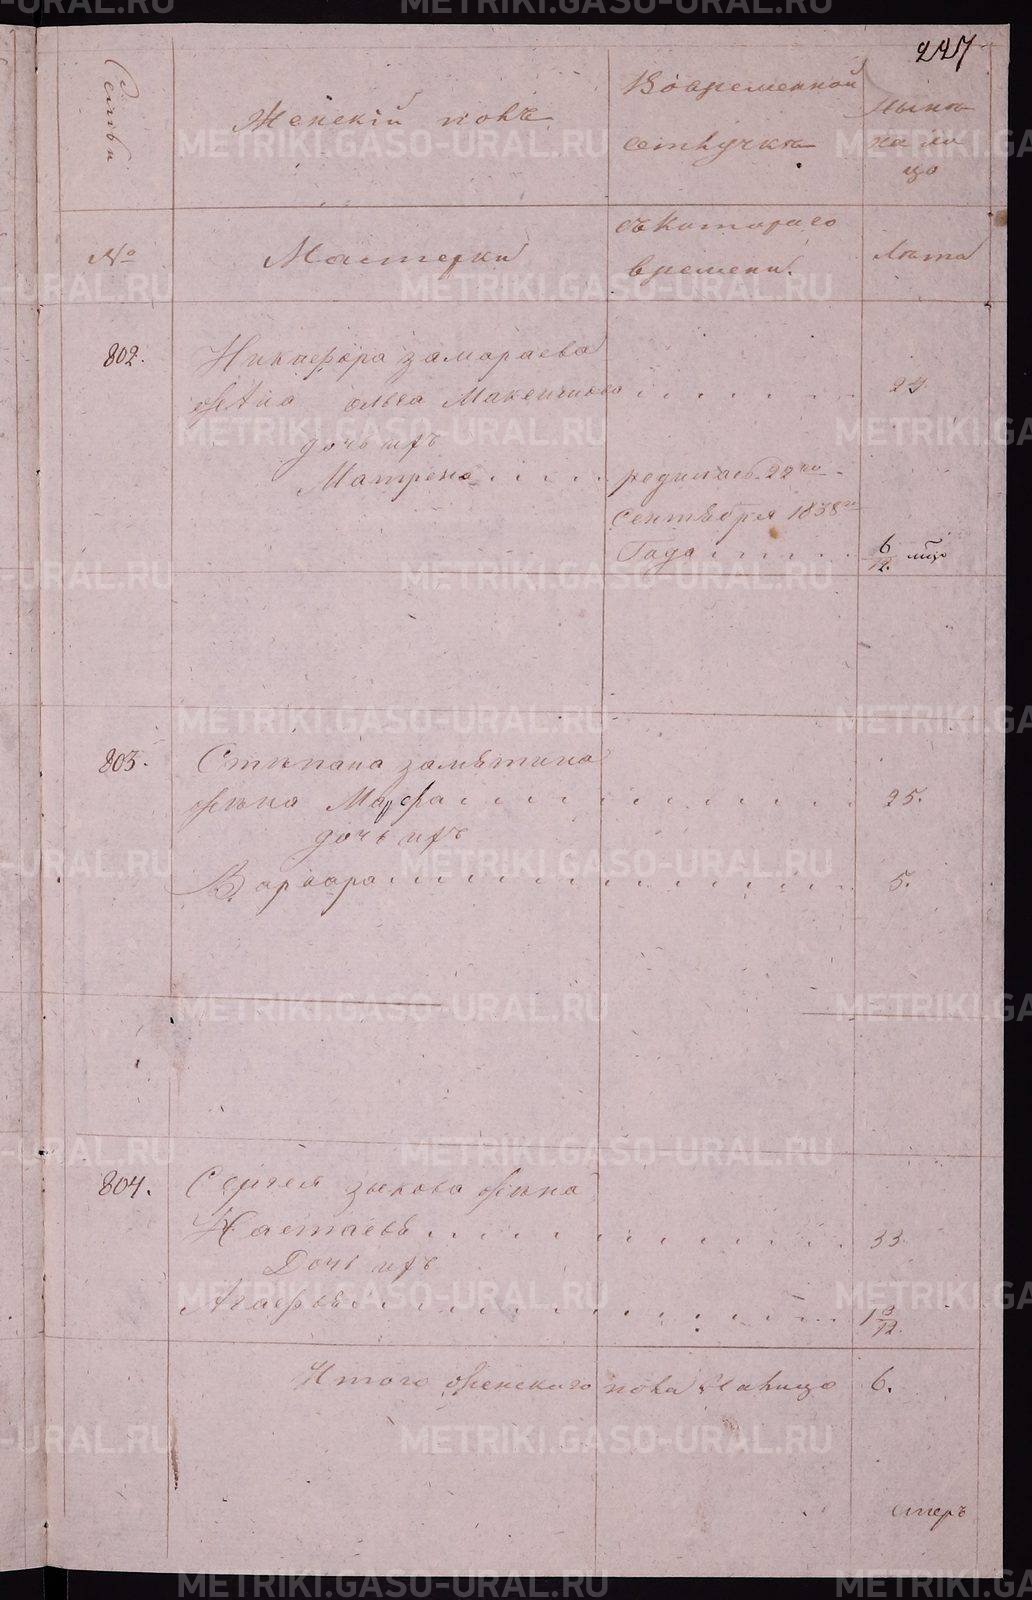 227
Семьи
Женскій полъ
Вовременной
отлучкѣ
нынѣ
на ли
цо
№
Мастерки
съ котораго
времени.
Лѣта
802.
Никифора Замараева
жена Ольга Максимова
24
дочь ихъ
Матрена
родилась 22го
сентября 1838го
Года
6/12 мѣс
803.
Стѣпана Замѣтина
жена Марфа
25.
дочь ихъ
Варвара
5.
804.
Сергея Зыкова жена
Настасья
33.
Дочь ихъ
Агафья
1 3/12.
Итого женского пола Налицо 6.